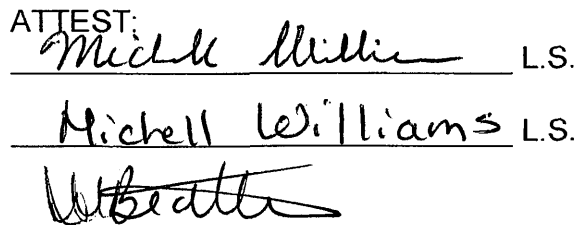 ATTEST:
Michell Williams L.S.
Michell Williams L.S.